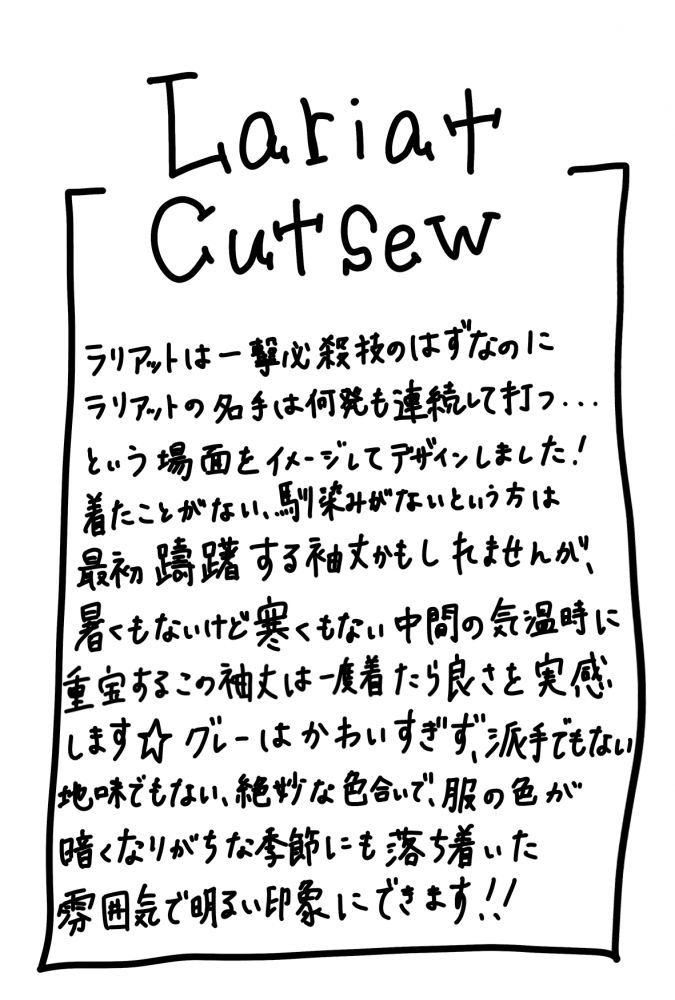 Lariat
Cutsew
ラリアットは一撃必殺技のはずなのに
ラリアットの名手は何発も連続して打つ...
という場面をイメージしてデザインしました!
着たことがない、馴染みがないという方は
最初躊躇する袖丈かもしれませんが、
暑くもないけど寒くもない中間の気温時に
重宝するこの袖丈は一度着たら良さを実感
します☆グレーはかわいすぎず、派手でもない
地味でもない、絶妙な色合いで、服の色が
暗くなりがちな季節にも落ち着いた
雰囲気で明るい印象にできます!!